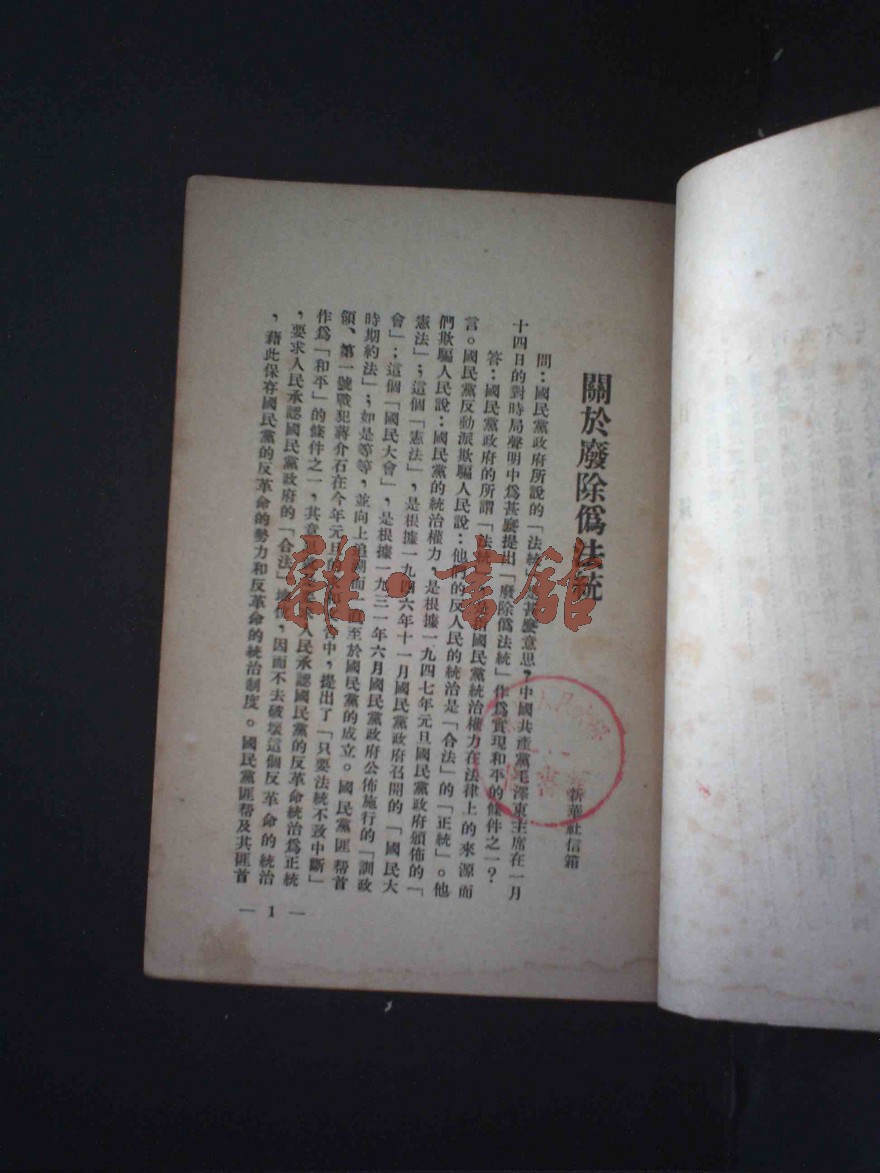 關於廢除僞法統
新華社信箱
問：國民黨政府所說的「法統」是甚麽意思，中國共產黨毛澤東主席在一月
十四日的對時局聲明中爲甚麽提出「廢除僞法統」作爲實現和平的條件之一？
答：國民黨政府的所謂「法統」，是指國民黨統治權力在法律上的來源而
言。國民黨反動派欺騙人民說：他們的反人民的統治是「合法」的「正統」。他
們欺騙人民說：國民黨的統治權力，是根據一九四七年元旦國民黨政府頒佈的「
憲法」；這個「憲法」，是根據一九四六年十一月國民黨政府召開的「國民大
會」；這個「國民大會」，是根據一九三一年六月國民黨政府公佈施行的「訓政
時期約法」；如是等等，並向上追溯而一直至於國民黨的成立。國民黨匪帮首
領、第一號戰犯蔣介石在今年元旦的求和文告中，提出了「只要法統不致中斷」
作爲「和平」的條件之一，其意思人民承認國民黨的反革命統治爲正統
，要求人民承認國民黨政府的「合法」地位，因而不去破壞這個反革命的統治
，藉此保存國民黨的反革命的勢力和反革命的統治制度。國民黨匪帮及其匪首
— 1 —
雜·書館